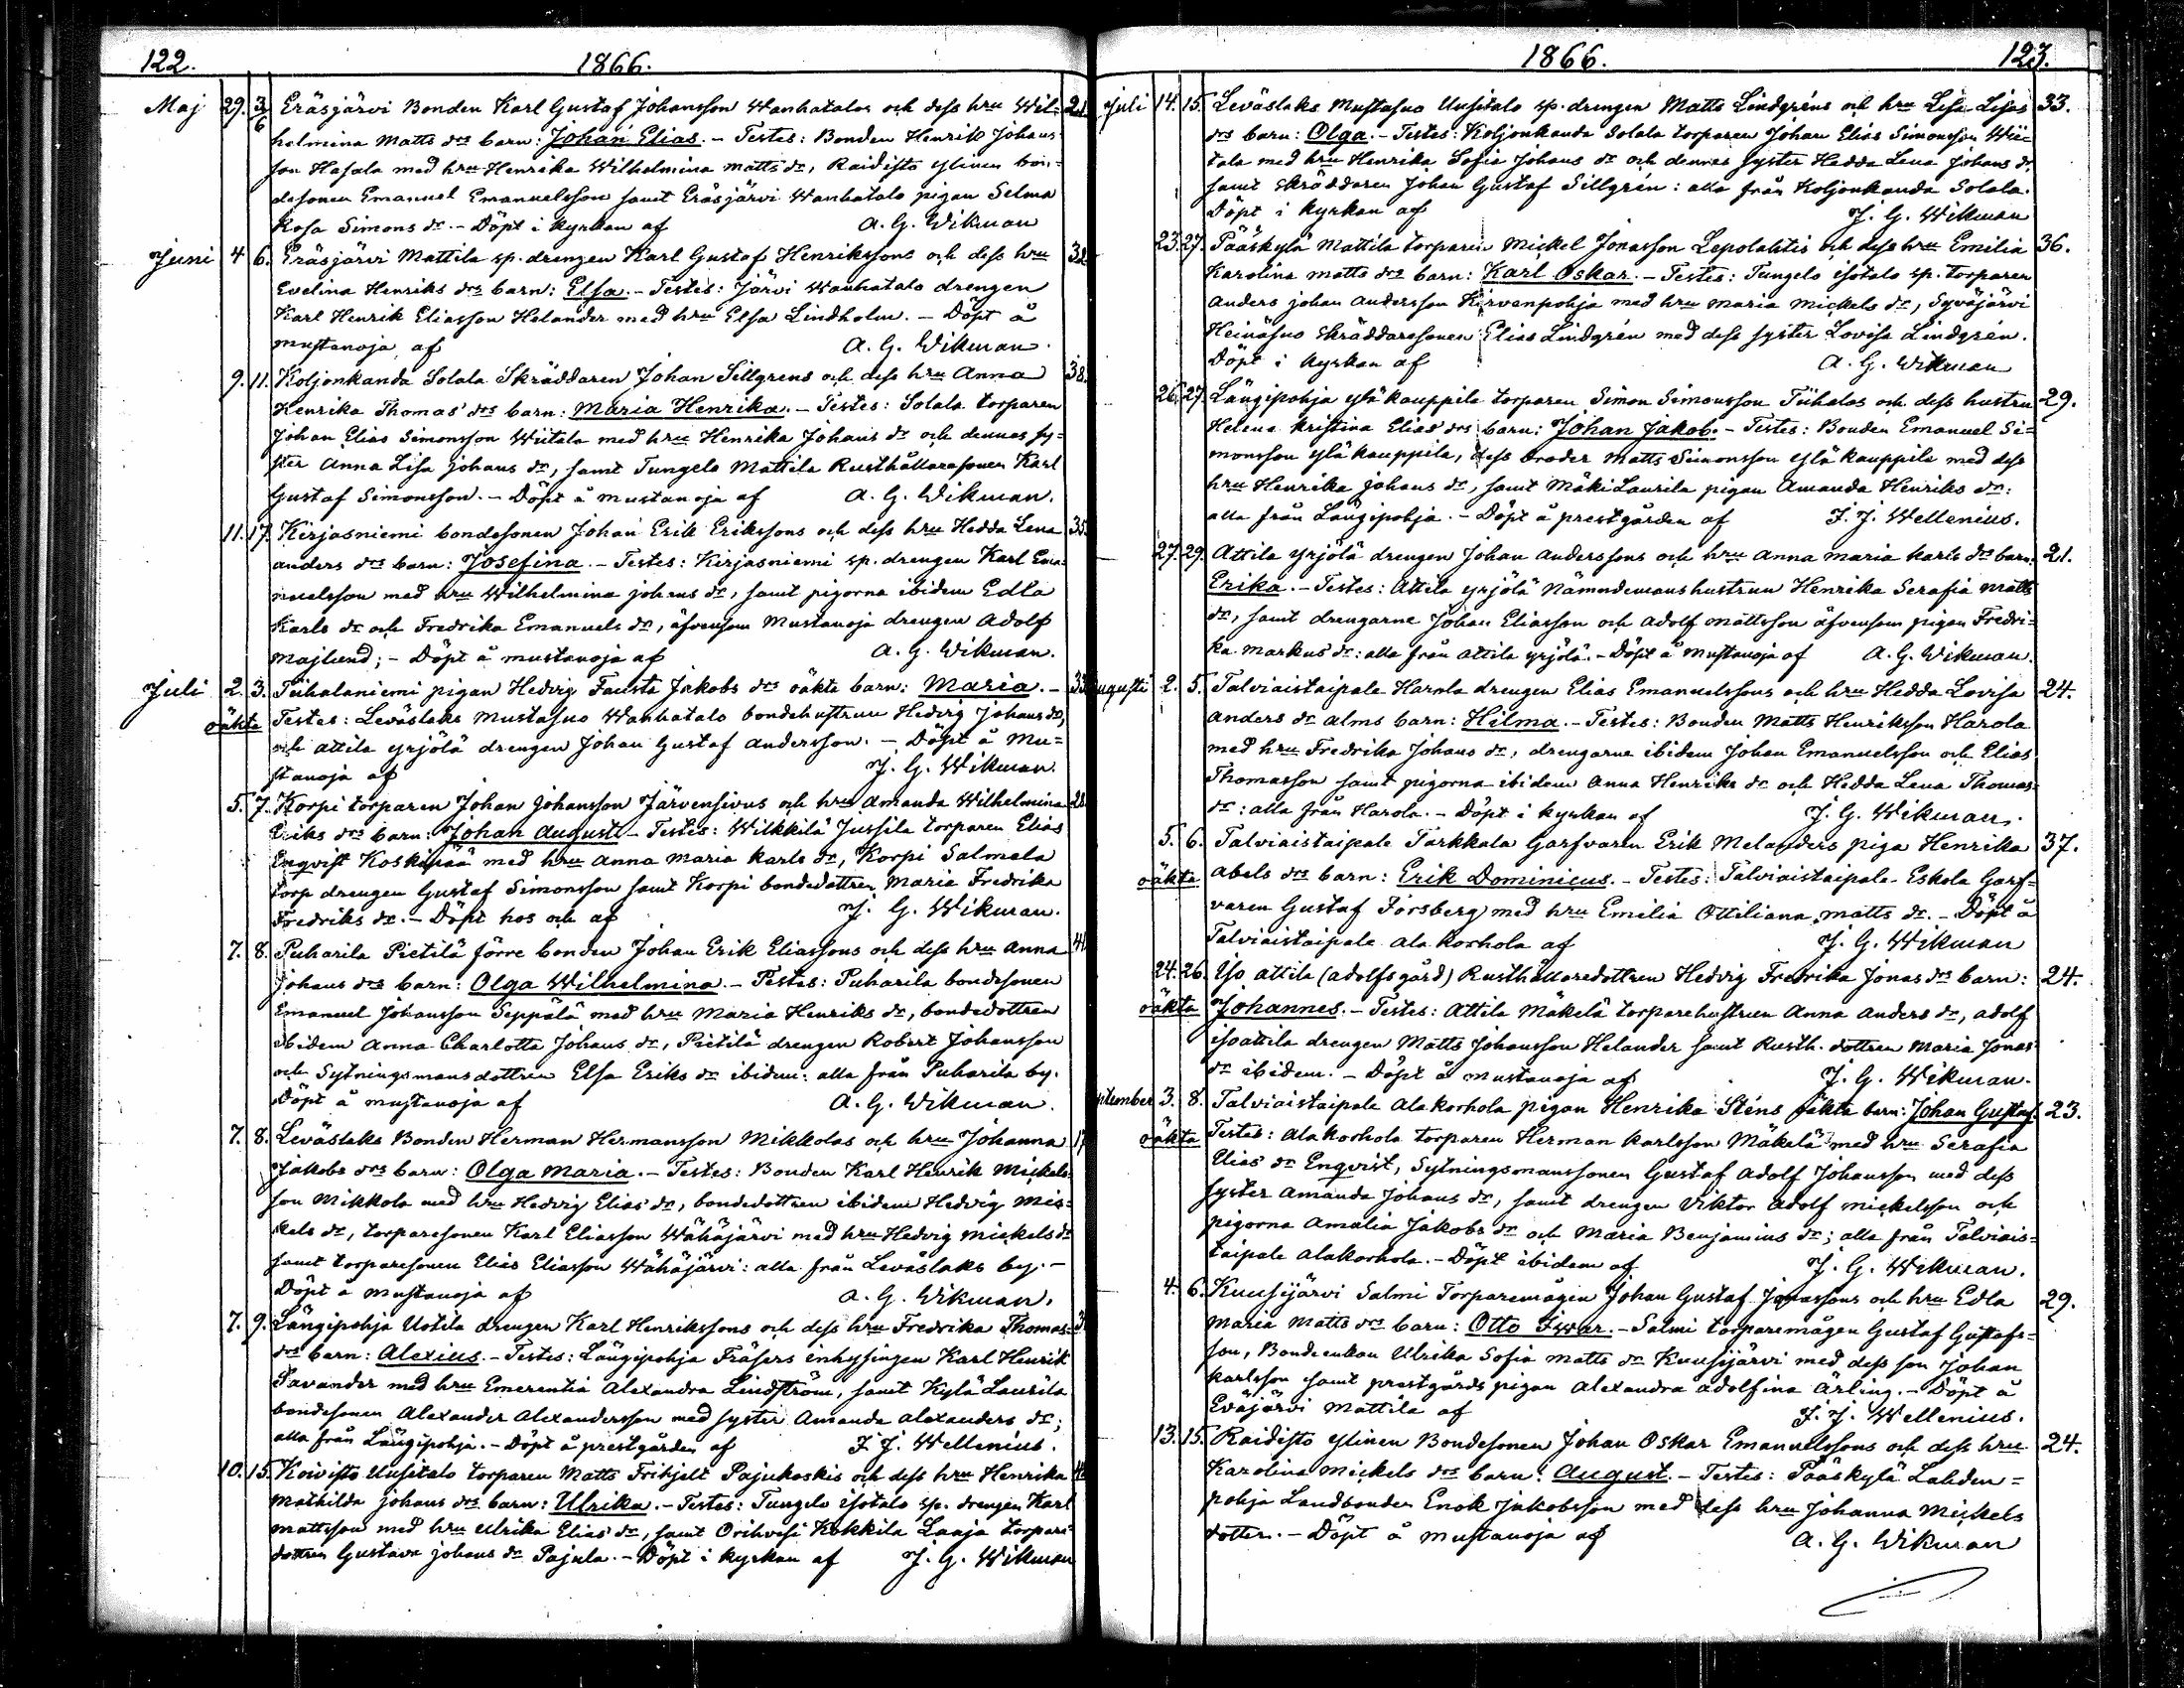 122. 1866.
Maj 29. 3/6 Eräsjärvi Bonden Karl Gustaf Johansson Wanhatalos och dess hru Wil= 21.
helmina Matts drs barn: Johan Elias. - Testes: Bonden Henrik Johans
son Hasala med hru Henrika Wilhelmina Matts dr, Raidisto ylinen bon=
desonen Emanuel Emanuelsson samt Eräsjärvi Wanhatalo pigan Selma
Rosa Simons dr. - Döpt i kyrkan af A. G. Wikman
Juni 4 6. Eräsjärvi Mattila sp. drengen Karl Gustaf Henrikssons och dess hru 32
Evelina Henriks drs barn: Elsa. - Testes: Järvi Wanhatalo drengen
Karl Henrik Eliasson Helander med hru Elsa Lindholm. - Döpt å
Mustanoja af A. G. Wikman.
9. 11. Koljonkanda Solala Skräddaren Johan Sillgrens och dess hru Anna 38.
Henrika Thomas' drs barn: Maria Henrika. - Testes: Solala torparen
Johan Elias Simonsson Wiitala med hru Henrika Johans dr och dennes sy=
ster Anna Lisa Johans dr, samt Tungelo Mattila Rusthållaresonen Karl
Gustaf Simonsson. - Döpt å Mustanoja af A. G. Wikman.
11. 17. Kirjasniemi bondesonen Johan Erik Erikssons och dess hru Hedda Lena 35.
Anders drs barn: Josefina. - Testes: Kirjasniemi sp. drengen Karl Ema=
nuelsson med hru Wilhelmina Johans dr, samt pigorna ibidem Edla
Karls dr och Fredrika Emanuels dr, äfvensom Mustanoja drengen Adolf
Majlund; - Döpt å Mustanoja af A. G. Wikman.
Juli 2. 3. Tiihalaniemi pigan Hedvig Fausta Jakobs drs oäkta barn: Maria. - 33
oäkta Testes: Leväslaks Mustasuo Wanhatalo bondehustrun Hedvig Johans dr,
och Attila yrjölä drengen Johan Gustaf Andersson. - Döpt å Mu=
stanoja af J. G. Wikman.
5. 7. Korpi torparen Johan Johansson Järvensivus och hru Amanda Wilhelmina 28
Eriks drs barn: Johan August. - Testes: Wilkkilä Jussila torparen Elias
Enqvist Koskipää med hru Anna Maria Karls dr, Korpi Salmela
torp drengen Gustaf Simonsson samt Korpi bondedottren Maria Fredrika
Fredriks dr. - Döpt hos och af J. G. Wikman.
7. 8. Puharila Pietilä förre bonden Johan Erik Eliassons och dess hru Anna 41
Johans drs barn: Olga Wilhelmina. - Testes: Puharila bondesonen
Emanuel Johansson Seppälä med hru Maria Henriks dr, bondedottren
ibidem Anna Charlotta Johans dr, Pietilä drengen Robert Johansson
och Sytningsmans dottren Elsa Eriks dr ibidem: alla från Puharila by.
Döpt å Mustanoja af A. G. Wikman.
7. 8. Leväslaks Bonden Herman Hermansson Mikkolas och hru Johanna 17
Jakobs drs barn: Olga Maria. - Testes: Bonden Karl Henrik Mickels=
son Mikkola med hru Hedvig Elias' dr, bondedottren ibidem Hedvig Mic=
kels dr, torparesonen Karl Eliasson Wähäjärvi med hru Hedvig Mickels dr
samt torparesonen Elias Eliasson Wähäjärvi: alla från Leväslaks by. -
Döpt å Mustanoja af A. G. Wikman.
7. 9. Längipohja Uotila drengen Karl Henrikssons och dess hru Fredrika Thomas= 3
drs barn: Alexius. - Testes: Längipohja Fräsers inhysingen Karl Henrik
Savander med hru Emerentia Alexandra Lindström, samt Kylä Laurila
bondesonen Alexander Alexandersson med syster Amanda Alexanders dr;
alla från Längipohja. - Döpt å prestgården af J. J. Wellenius.
10. 15. Koivisto Uusitalo torparen Matts Frihjelt Pajukoskis och dess hru Henrika 4
Mathilda Johans drs barn: Ulrika. - Testes: Tungelo isotalo sp. drengen Karl
Mattsson med hru Ulrika Elias' dr, samt Orihvesi Kokkila Laaja torpare
dottren Gustava Johans dr Pajula. - Döpt i kyrkan af J. G. Wikman
1866. 123.
Juli 14. 15. Leväslaks Mustasuo Uusitalo sp. drengen Matts Lindgréns och hru Lisa Lisas 33.
drs barn: Olga. - Testes: Koljonkanda Solala torparen Johan Elias Simonsson Wii=
tala med hru Henrika Sofia Johans dr och dennes syster Hedda Lena Johans dr
samt skräddaren Johan Gustaf Sillgrén: alla från Koljonkanda Solala.
Döpt i kyrkan af J. G. Wikman
23. 27. Pääskylä Mattila torparen Mickel Jonasson Lepolahtis och dess hru Emilia 36.
Karolina Matts drs barn: Karl Oskar. - Testes: Tungelo isotalo sp. torparen
Anders Johan Andersson Kirvenpohja med hru Maria Mickels dr, Syväjärvi
Heinäsuo skräddaresonen Elias Lindgrén med dess syster Lovisa Lindgrén.
Döpt i kyrkan af A. G. Wikman
26. 27. Längipohja ylä kauppila torparen Simon Simonsson Tiihalas och dess hustru 29.
Helena Kristina Elias' drs barn: Johan Jakob. - Testes: Bonden Emanuel Si=
monsson ylä kauppila, dess broder Matts Simonsson ylä kauppila med dess
hru Henrika Johans dr, samt Mäki Laurila pigan Amanda Henriks dr:
alla från Längipohja. - Döpt å prestgården af J. J. Wellenius.
27. 29. Attila yrjölä drengen Johan Anderssons och hru Anna Maria Karls drs barn: 21.
Erika. - Testes: Attila yrjölä Nämndemanshustrun Henrika Serafia Matts
dr, samt drengarne Johan Eliasson och Adolf Mattsson äfvensom pigan Fredri=
ka Markus' dr: alla från Attila yrjölä. - Döpt å Mustanoja af A. G. Wikman.
Augusti 2. 5. Talviaistaipale Harola drengen Elias Emanuelssons och hru Hedda Lovisa 24.
Anders dr Alms barn: Hilma. - Testes: Bonden Matts Henriksson Harola
med hru Fredrika Johans dr, drengarne ibidem Johan Emanuelsson och Elias
Thomasson samt pigorna ibidem Anna Henriks dr och Hedda Lena Thomas
dr: alla från Harola. - Döpt i kyrkan af J. G. Wikman.
5. 6. Talviaistaipale Tarkkala Garfvaren Erik Melanders piga Henrika 37.
oäkta Abels drs barn: Erik Dominicus. - Testes: Talviaistaipale Eskola Garf=
varen Gustaf Forsberg med hru Emilia Ottiliana Matts dr. - Döpt å
Talviaistaipale Ala korhola af J. G. Wikman
24. 26. Iso Attila (Adolfsgård) Rusthållaredottren Hedvig Fredrika Jonas drs barn: 24.
oäkta Johannes. - Testes: Attila Mäkelä torparehustrun Anna Anders dr, Adolf
isoattila drengen Matts Johansson Helander samt Rusth. dottren Maria Jonas
dr ibidem. - Döpt å Mustanoja af J. G. Wikman.
September 3. 8. Talviaistaipale Ala korhola pigan Henrika Sténs oäkta barn: Johan Gustaf. 23.
oäkta Testes: Ala korhola torparen Herman Karlsson Mäkelä med hru Serafia
Elias' dr Enqvist, Sytningsmanssonen Gustaf Adolf Johansson med dess
syster Amanda Johans dr, samt drengen Viktor Adolf Mickelsson och
pigorna Amalia Jakobs dr och Maria Benjamins dr; alla från Talviais=
taipale Alakorhola. - Döpt ibidem af J. G. Wikman.
4. 6. Kuusijärvi Salmi Torparemågen Johan Gustaf Jonassons och hru Edla 29.
Maria Matts drs barn: Otto Iwar. - Salmi torparemågen Gustaf Gustafs=
son, Bondeenkan Ulrika Sofia Matts dr Kuusijärvi med dess son Johan
Karlsson samt prestgårds pigan Alexandra Adolfina Ärling. - Döpt å
Eväjärvi Mattila af J. J. Wellenius.
13. 15. Raidisto ylinen Bondesonen Johan Oskar Emanuelssons och dess hru 24.
Karolina Mickels drs barn: August. - Testes: Pääskylä Lahden=
pohja Landbonden Enok Jakobsson med dess hru Johanna Mickels
dotter. - Döpt å Mustanoja af A. G. Wikman